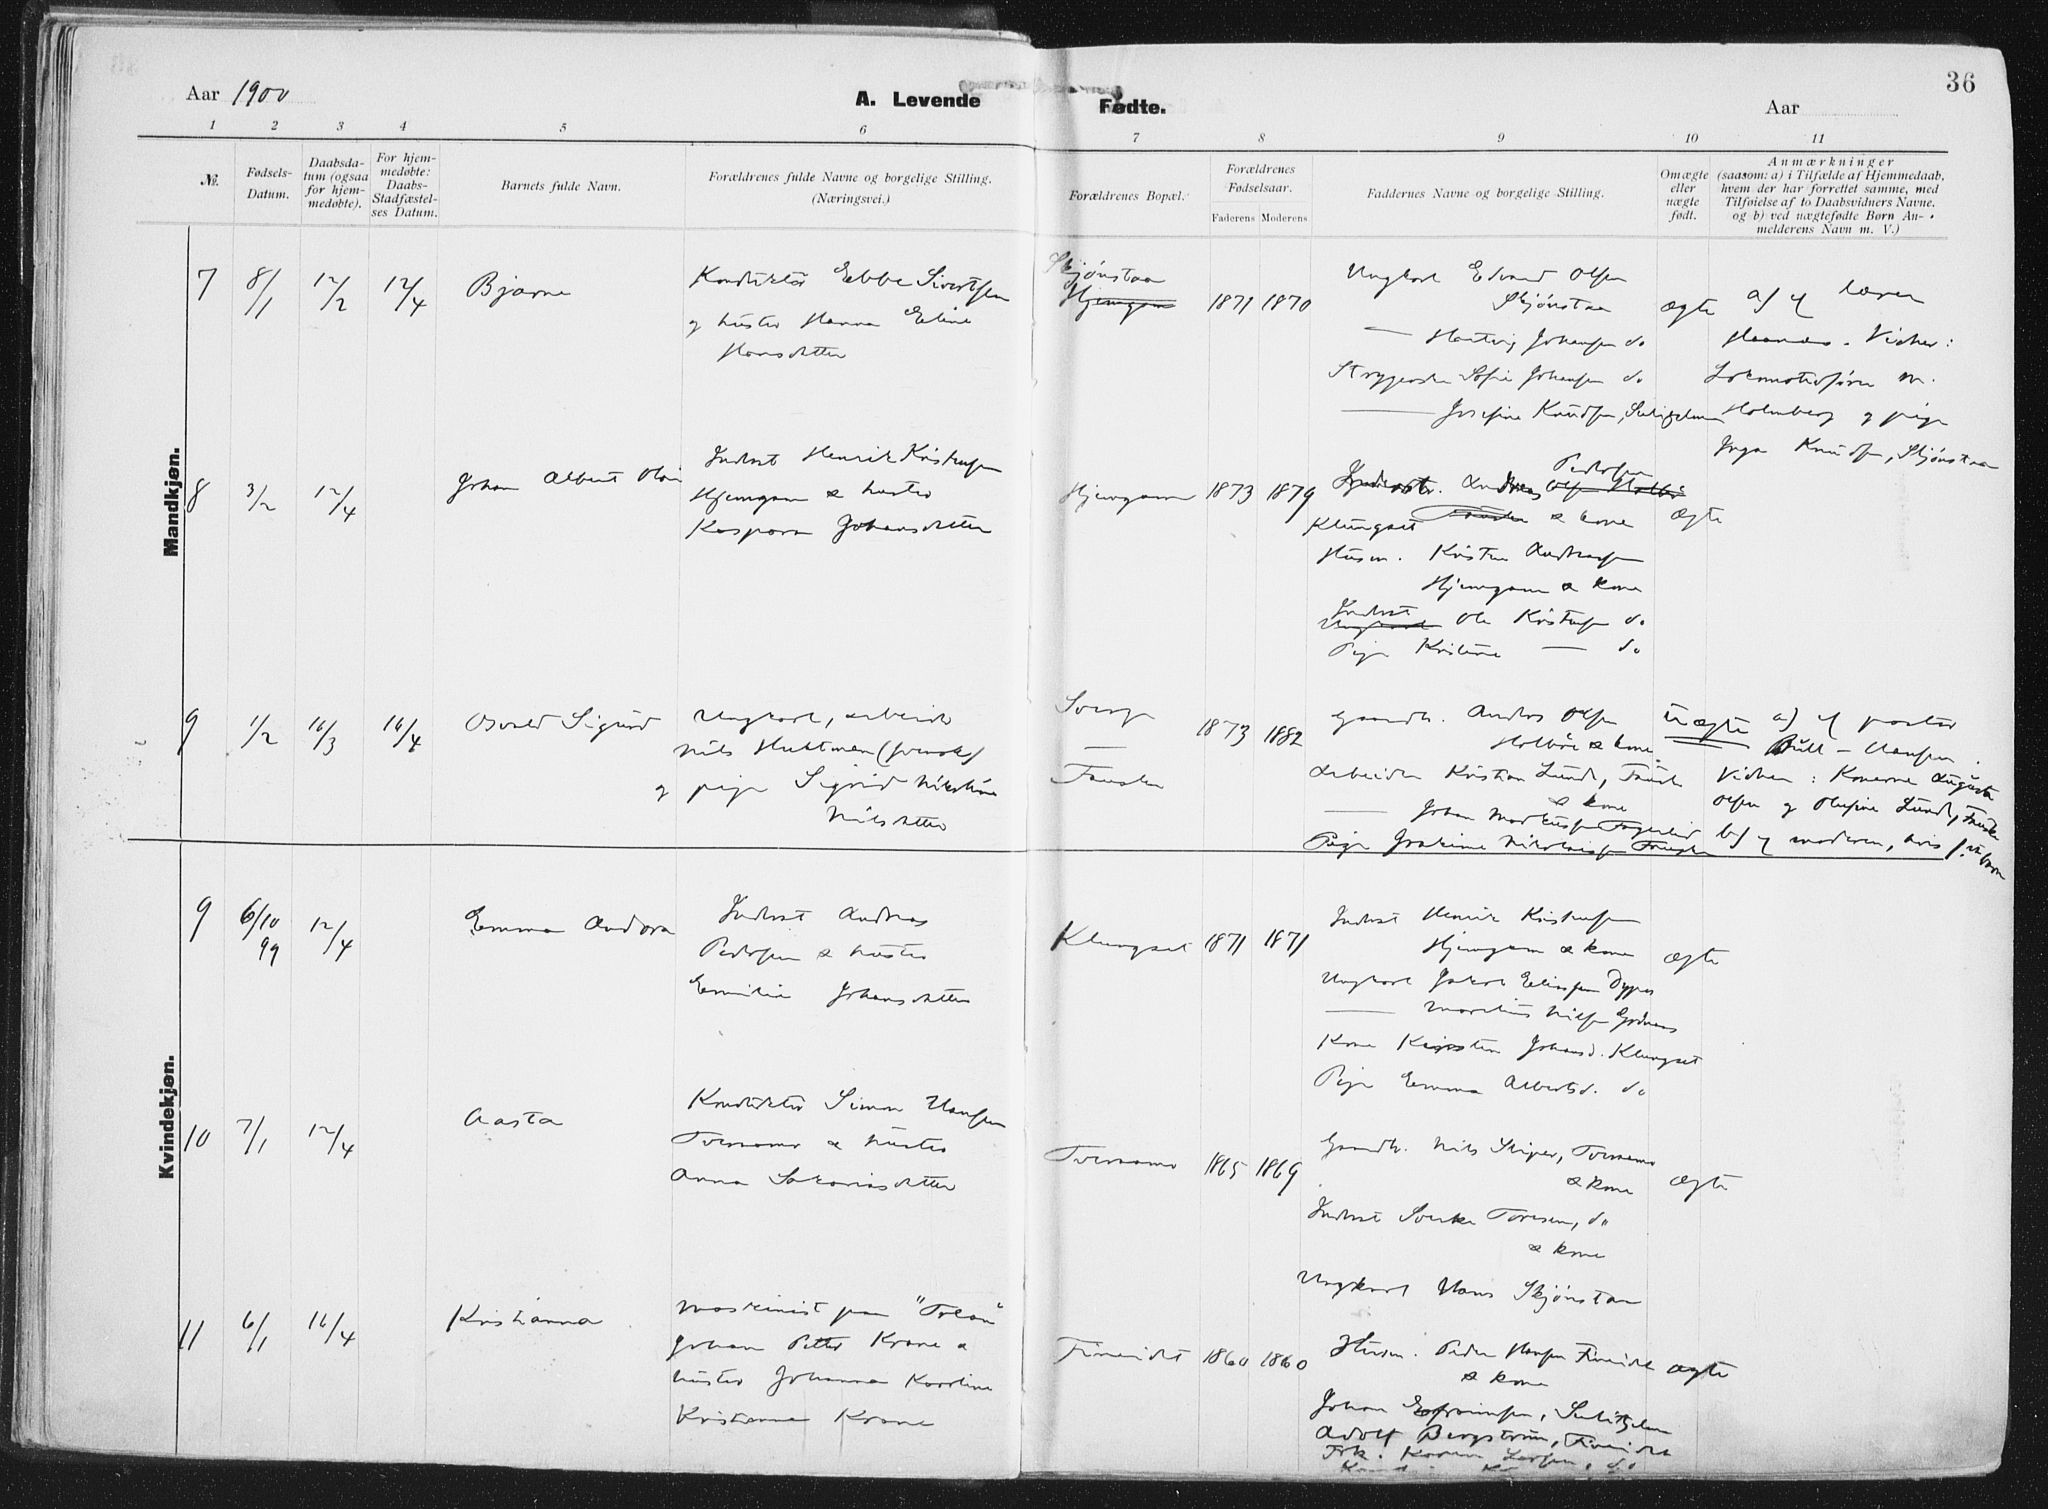 36
Aar 1900
A. Levende Fødte.
Aar
1 2 3 4 5 6 7 8 9 10 11
№.
Fødsels-
Datum.
Daabsda-
tum (ogsaa
for hjem-
medøbte).
For hjem-
medøbte:
Daabs-
Stadfæstel-
ses Datum.
Barnets fulde Navn.
Forældrenes fulde Navne og borgelige Stilling.
(Næringsvei.)
Forældrenes Bopæl.
Forældrenes
Fødselsaar.
Faderens Moderens
Faddernes Navne og borgelige Stilling.
Omægte
eller
uægte
født.
Anmærkninger
(saasom: a) i Tilfælde af Hjemmedaab,
hvem der har forrettet samme, med
Tilføielse af to Daabsvidners Navne.
og b) ved uægtefødte Børn An-
melderens Navn m. V.)
Mandkjøn.
7 8/1 12/2 12/4 Bjarne
Konduktør Ebbe Sivertsen
og hustru Hanna Eline
Hansdatter
Skjønstaa
Hjemgam
1871 1870
Ungkarl Edvard Olsen
Skjønstaa
— Hartvig Johansen do
Sofie Johansen do
— Josefine Knudsen, Sulitjelma
ægte
a) af lærer
Vidner:
Lokomotivfører M.
Holmberg og pige
Inga Knudsen, Skjønstaa
8 3/2 12/4 Johan Albert Olai
Inderst Henrik Kristensen
Hjemgam & hustru
Kaspara Johansdatter
Hjemgam 1873 1879
Pedersen
Inderst. Andreas Olsen Holbø
Klungset Fauske & kone
Husm. Kristen Andreassen
Hjemgam & kone
Inderst
Ungkarl Ole Kristensen do
Pige Kristine — do
ægte
9 1/2 16/3 16/4 Osvald Sigurd
Ungkarl, arbeider
Nils Huttmen (svensk)
og pige Sigrid Nikoline
Nilsdatter
Sverige
—
Fauske
1873 1882
Gaardb. Andreas Olsen
Holbø & kone
Arbeider Kristian Lund, Fauske
& kone
— Johan Markussen Fagerlid
Pige Joakime Nikolaisen Fauske
uægte
a) af pastor
Bull-Hansen.
Vidner: Konerne Augusta
Olsen og Olufine Lund, Fauske
b) af moderen, hvis 1. barn
Kvindekjøn.
9 6/10 99 12/4 Emma Andora
Inderst Andreas
Pedersen & hustru
Emilie Johansdatter
Klungset 1871 1871
Inderst Henrik Kristensen
Hjemgam & kone
Ungkarl Jakob Eliassen Dypos
— Marelius Nilsen Godnes
Kone Kirsten Johansd. Klungset
Pige Emma Albertsd. do
ægte
10 7/1 12/4 Aasta
Konduktør Simon Hansen
Tverraamo & hustru
Anna Sakariasdatter
Tverraamo 1865 1869
Gaardb. Nils Skiper, Tverraamo
& kone
Inderst Sverke Toresen, do
& kone
Ungkarl Hans Skjønstaa
ægte
11 6/1 16/4 Kristianna
Maskinist paa "Tolaa"
Johan Petter Krane &
hustru Johanna Karoline
Kristianne Krane
Fineidet 1860 1860
Husm. Peder Hansen Fineidet
& kone
Johan Efraimsen, Sulitjelma
Adolf Bergstrøm, Fineidet
Frk. Karen Larsen, do
ægte